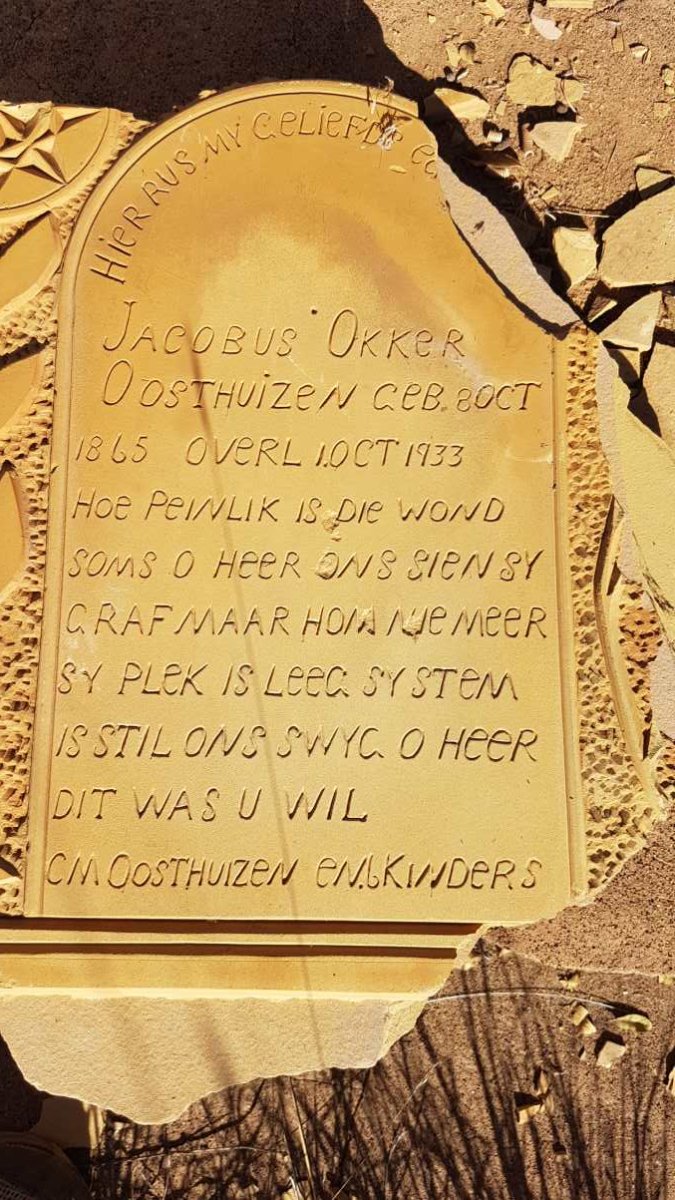 HIER RUS MY GELIEFDE
JACOBUS OKKER
OOSTHUIZEN GEB. 8 OCT
1865 OVERL 1.OCT 1933
HOE PEINLIK IS DIE WOND
SOMS O HEER ONS SIEN SY
GRAF MAAR HOM NIE MEER
SY PLEK IS LEEG SY STEM
IS STIL ONS SWYG O HEER
DIT WAS U WIL
CM OOSTHUIZEN EN.6 KINDERS